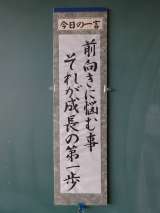 今日の一言
前向きに悩む事
それが成長の第一歩